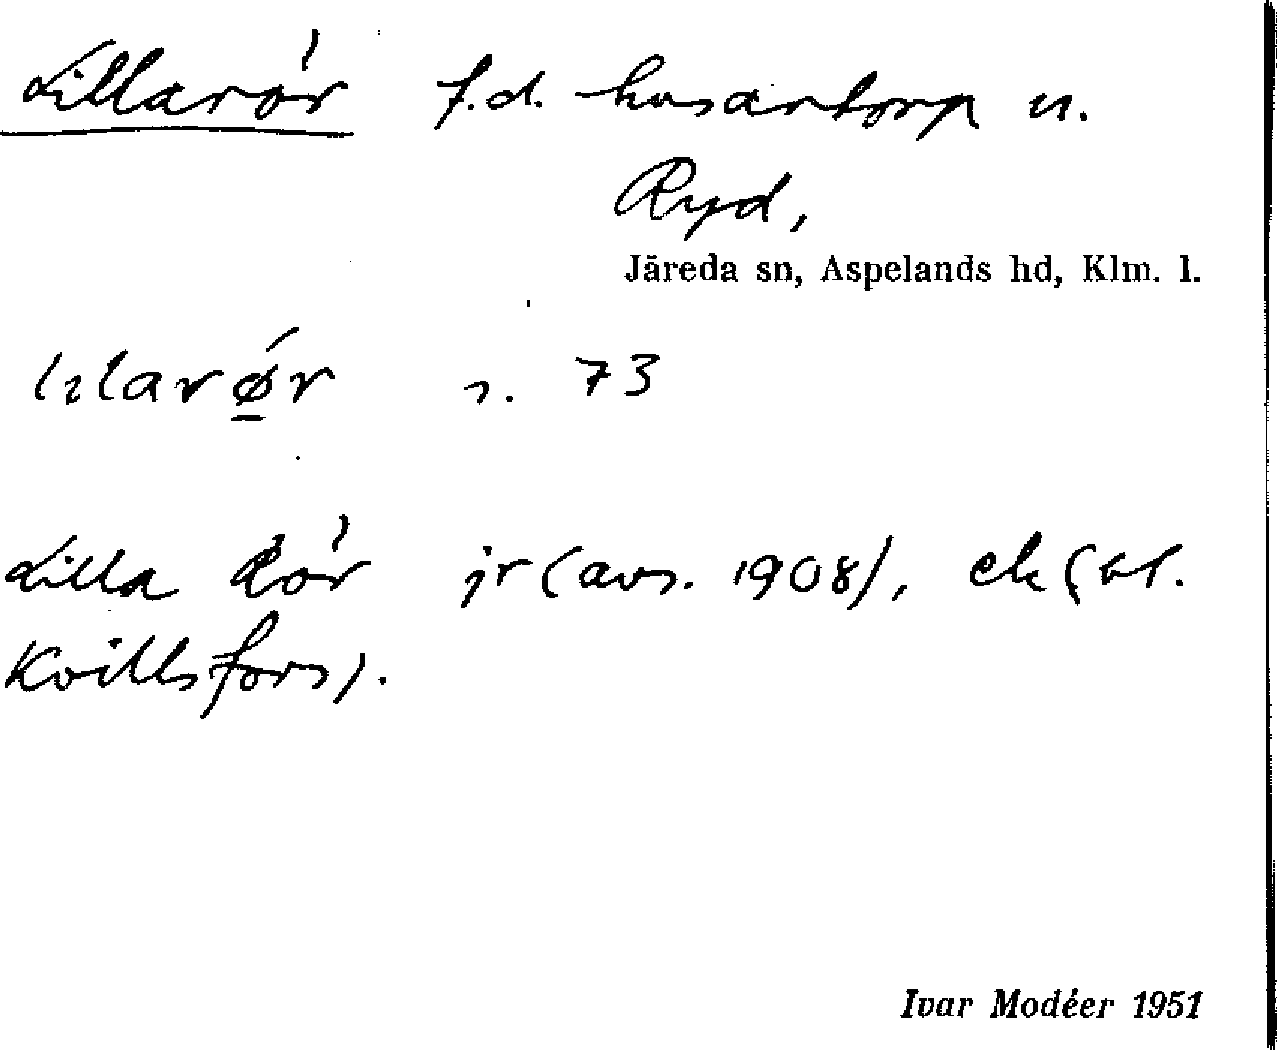 Lillarör f.d. husartorp u.
Ryd,
Järeda sn, Aspelands hd, Klm. l.
s. 73
Lilla Rör jr (avs. 1908), ek (bl.
Kvillsfors).
Ivar Modéer 1951